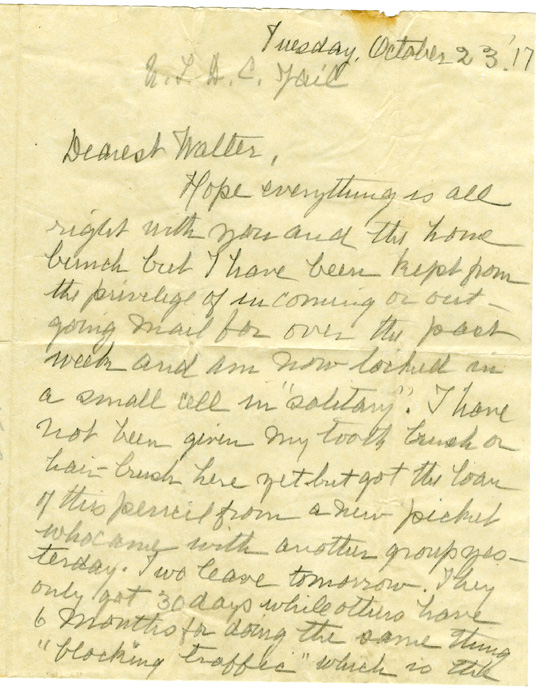 Tuesday, October 23 '17
D. C. Jail
Dearest Walter,
Hope everything is all
right with you and the home
bunch but I have been kept from
the privilege of incoming or out-
going mail for over the past
week and am now locked in
a small cell in "solitary". I have
not been given my tooth brush or
hair-brush here yet but got the loan
of this pencil from a new picket
who came with another group yes-
terday. Two leave tomorrow. They
only got 30 days while others have
6 months for doing the same thing
"blocking traffic" which is the